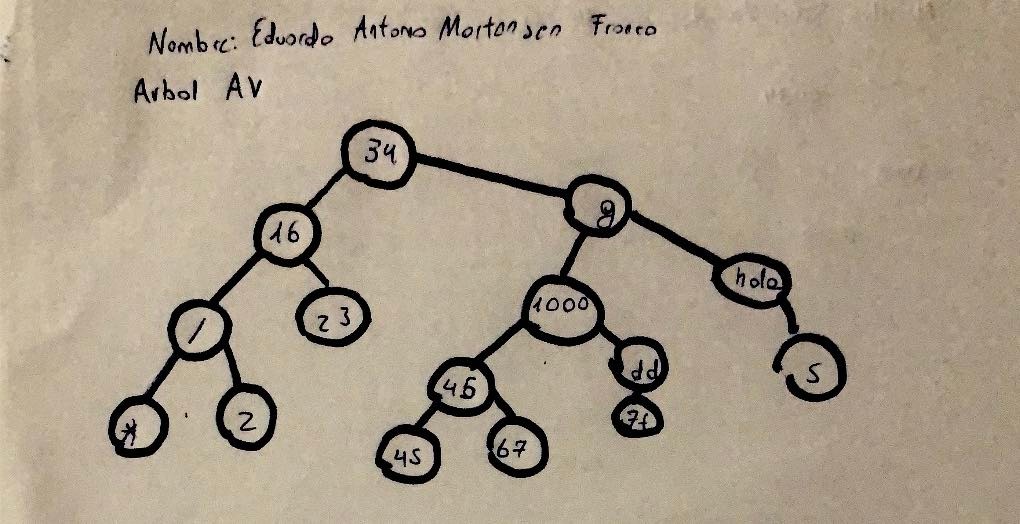 Nombre: Eduardo Antonio Mortensen Franco
Arbol AV
34
16
g
/
23
1000
hola
*
2
46
dd
s
45
67
7f